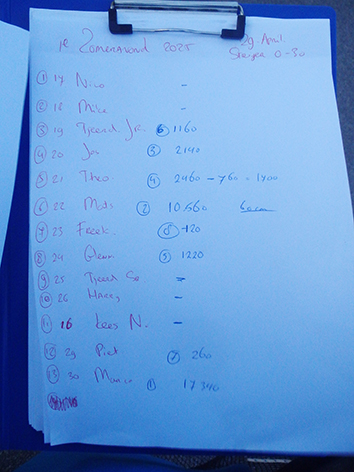 1e Zomeravond 2025 29 April
Steyl 0-30
① 17 Nico -
② 18 Mike -
③ 19 Tjeerd Jr. ⑥ 1160
④ 20 Jos ③ 2140
⑤ 21 Theo. ④ 2460 - 760 = 1700
⑥ 22 Mats ② 10.560
⑦ 23 Freek. ⑧ 120
⑧ 24 Glenn ⑤ 1220
⑨ 25 Tjeerd Sr -
⑩ 26 Harry -
11 16 Kees N. -
⑫ 29 Piet ⑦ 260
⑬ 30 Marco ① 17340